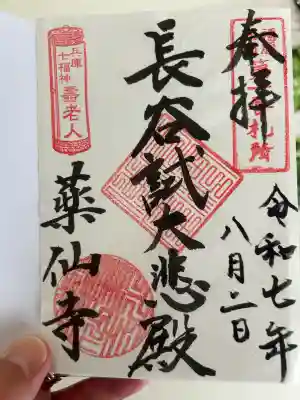 奉拝
令和七年
八月二日
長谷試大悲殿
兵庫
七福神
壽老人
薬仙寺